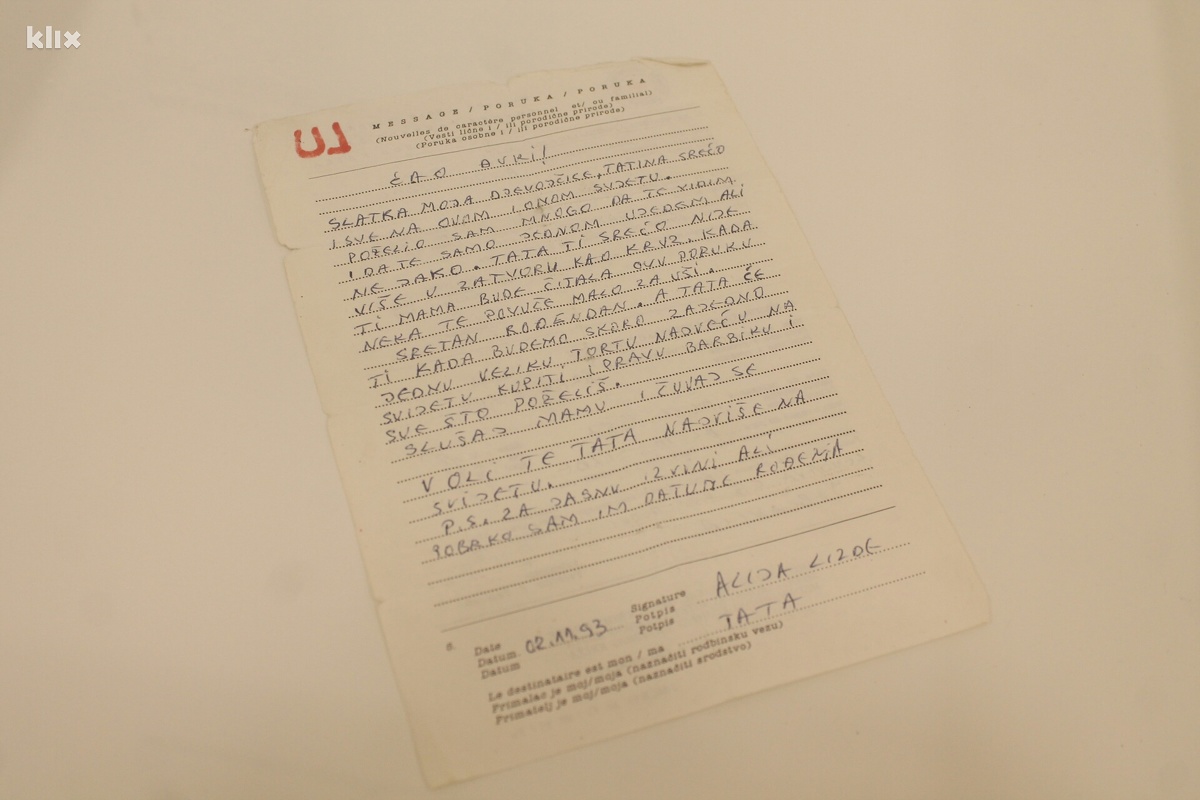 klix
MESSAGE / PORUKA / PORUKA
(Nouvelles de caractère personnel et/ ou familial)
(Vesti lične i / ili porodične prirode)
(Poruka osobne i / ili porodične prirode)
ĆAO AVKI!
SLATKA MOJA DJEVOJČICE, TATINA SREĆO
I SVE NA OVOM I ONOM SVIJETU.
POŽELIO SAM MNOGO DA TE VIDIM
I DA TE SAMO JEDNOM UJEDEM ALI
NE JAKO. TATA TI SREĆO NIJE
VIŠE U ZATVORU KAO KRVZ. KADA
TI MAMA BUDE ČITALA OVU PORUKU
NEKA TE POVUČE MALO ZA UŠI.
SRETAN ROĐENDAN. A TATA ĆE
TI KADA BUDEMO SKORO ZAJEDNO
JEDNU VELIKU TORTU NAJVEĆU NA
SVIJETU KUPITI I PRAVU BARBIKU I
SVE ŠTO POŽELIŠ.
SLUŠAJ MAMU I ČUVAJ SE
VOLI TE TATA NAJVIŠE NA
SVIJETU.
P.S. ZA JASNU IZVINI ALI
SAM IM DATUME ROĐENJA
8. Date
Datum 02.11.93
Datum
Signature
Potpis ALIJA LIZDE
Potpis
Le destinataire est mon / ma TATA
Primalac je moj/moja (naznačiti rodbinsku vezu)
Primatelj je moj/moja (naznačiti srodstvo)